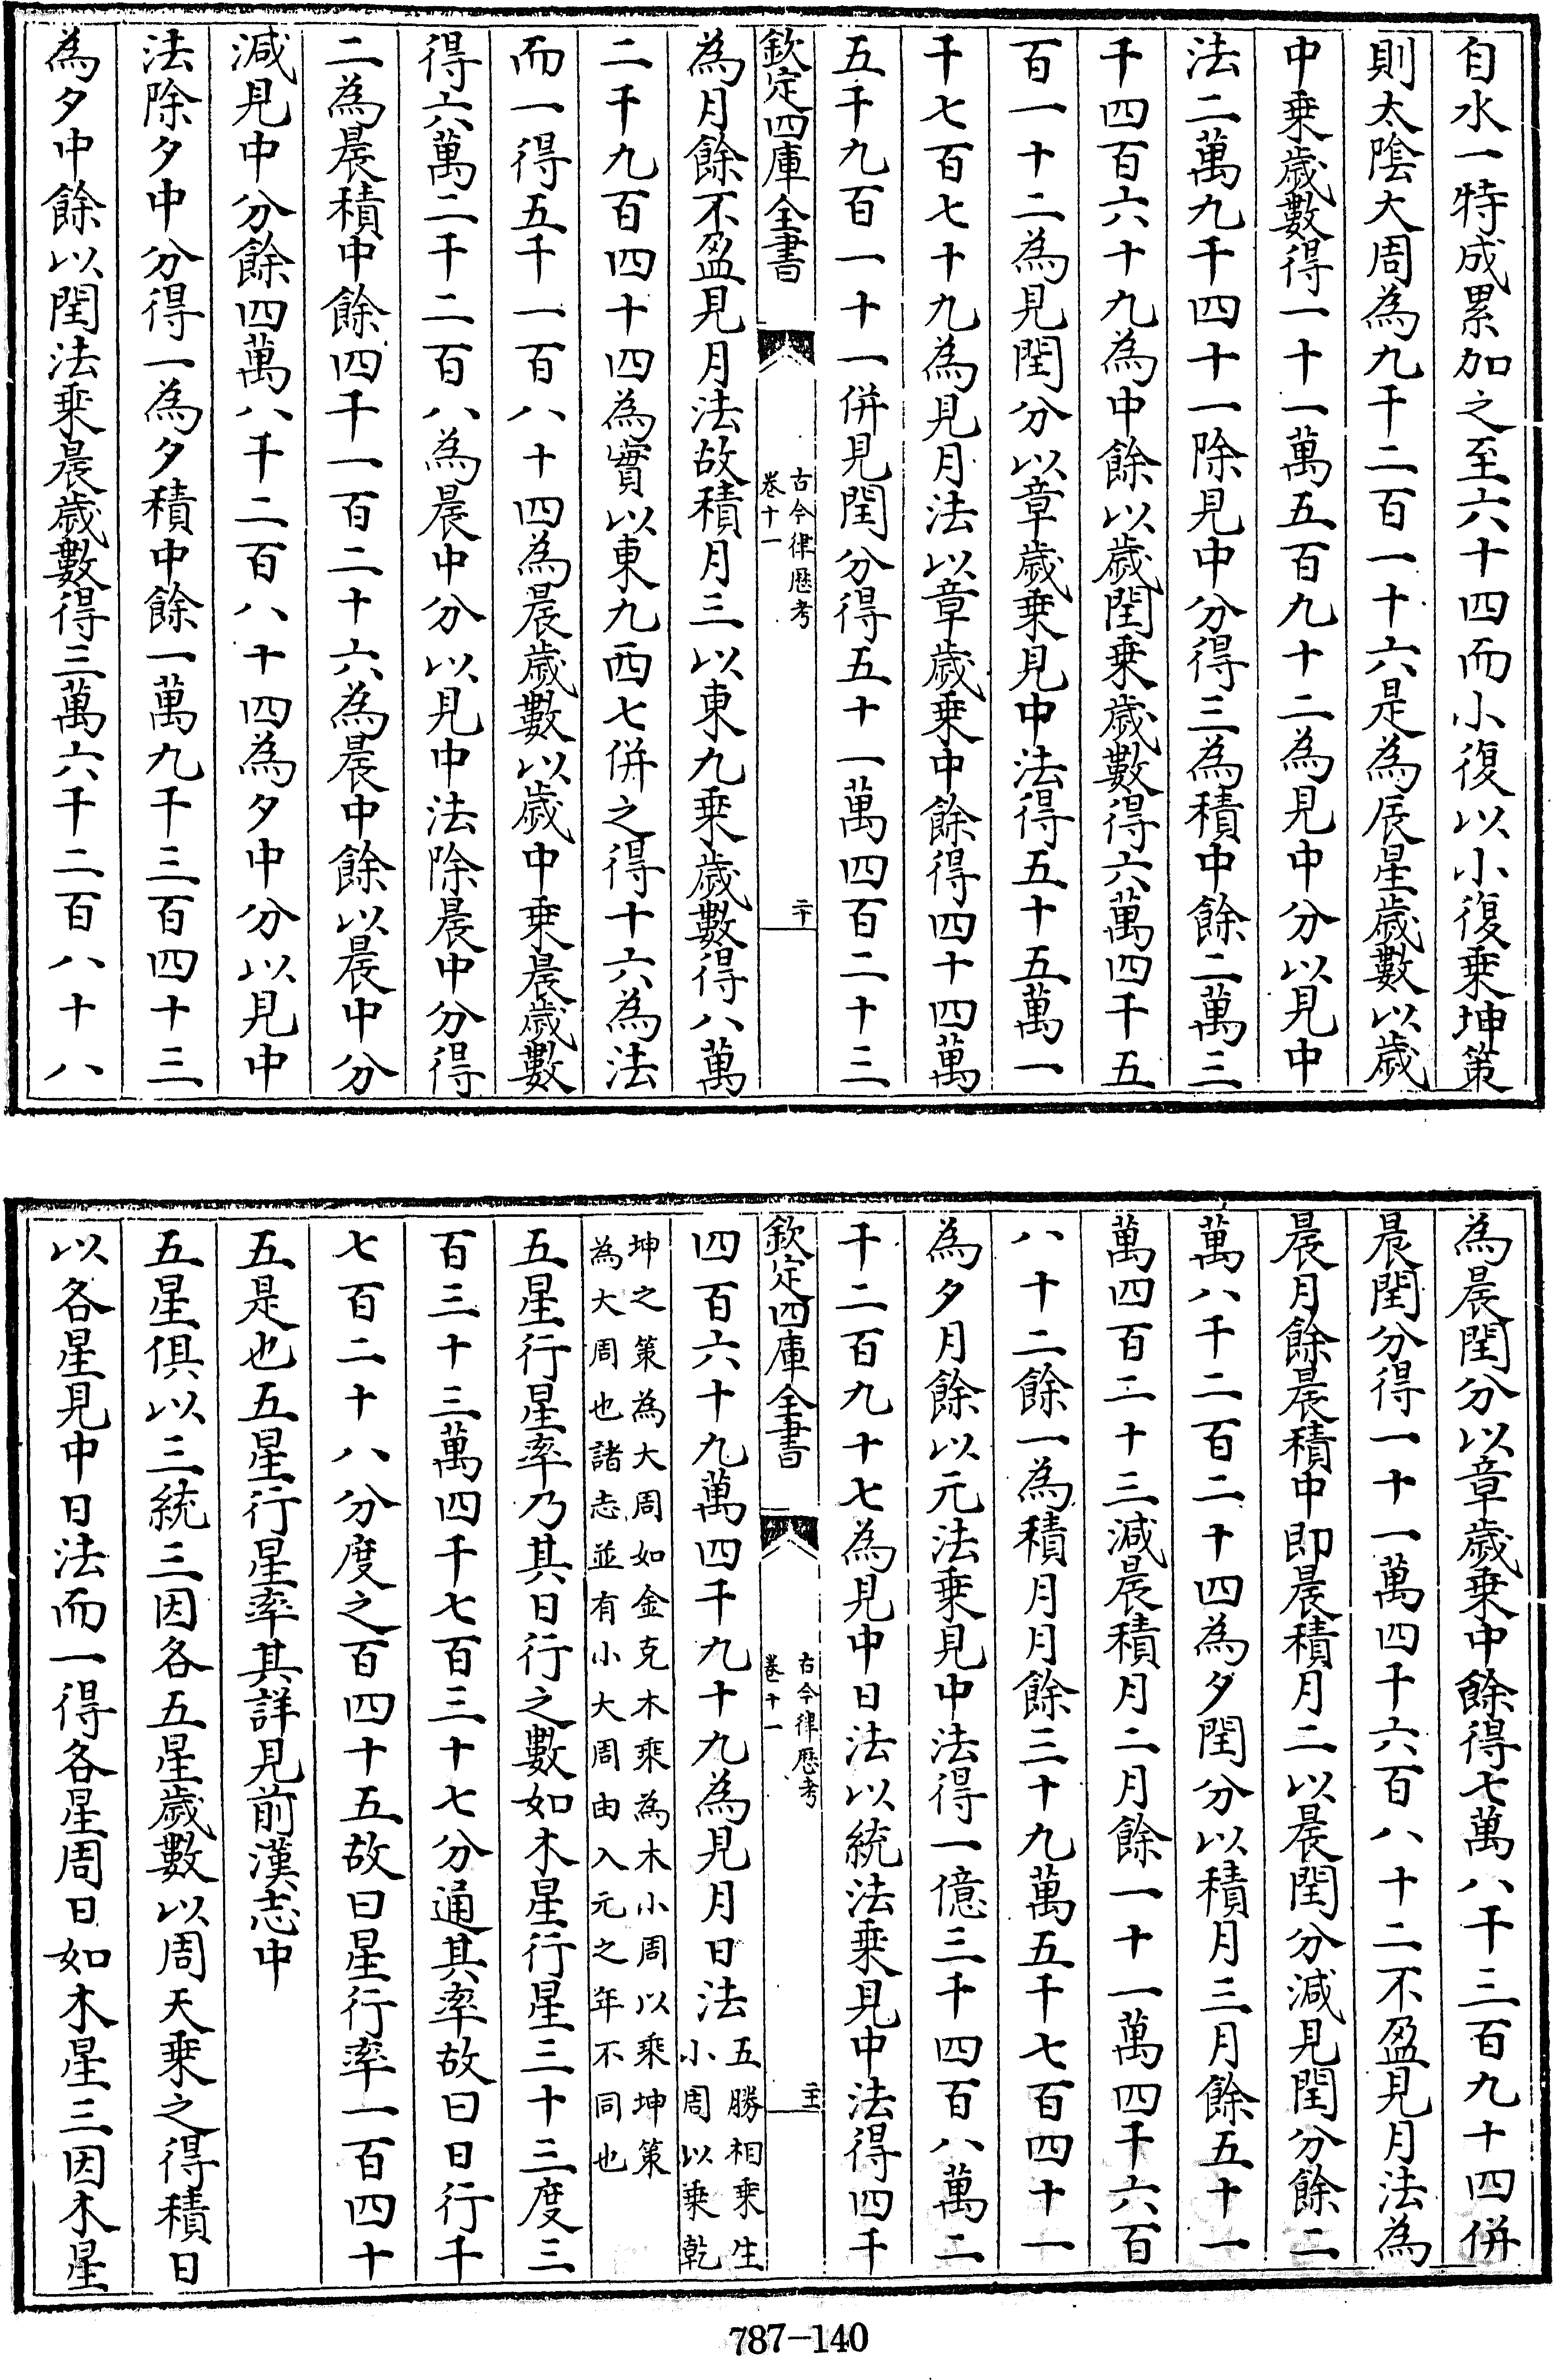 自水一特成累加之至六十四而小復以小復乗坤策
則太隂大周為九千二百一十六是為辰星歲數以歲
中乗歲數得一十一萬五百九十二為見中分以見中
法二萬九千四十一除見中分得三為積中餘二萬三
千四百六十九為中餘以歲閏乗歲數得六萬四千五
百一十二為見閏分以章歲乗見中法得五十五萬一
千七百七十九為見月法以章歲乗中餘得四十四萬
五千九百一十一併見閏分得五十一萬四百二十三
欽定四庫全書
古今律歴考
卷十一
二十
為月餘不盈見月法故積月三以東九乗歲數得八萬
二千九百四十四為實以東九西七併之得十六為法
而一得五千一百八十四為晨歲數以歲中乗晨歲數
得六萬二千二百八為晨中分以見中法除晨中分得
二為晨積中餘四千一百二十六為晨中餘以晨中分
減見中分餘四萬八千二百八十四為夕中分以見中
法除夕中分得一為夕積中餘一萬九千三百四十三
為夕中餘以閏法乗晨歲數得三萬六千二百八十八
為晨閏分以章歲乗中餘得七萬八千三百九十四併
晨閏分得一十一萬四千六百八十二不盈見月法為
晨月餘晨積中即晨積月二以晨閏分減見閏分餘二
萬八千二百二十四為夕閏分以積月三月餘五十一
萬四百二十三減晨積月二月餘一十一萬四千六百
八十二餘一為積月月餘三十九萬五千七百四十一
為夕月餘以元法乗見中法得一億三千四百八萬二
千二百九十七為見中日法以統法乗見中法得四千
欽定四庫全書
古今律歴考
卷十一
二十一
四百六十九萬四千九十九為見月日法五勝相乗生
小周以乗乾
坤之策為大周如金克木乗為木小周以乗坤策
為大周也諸志並有小大周由入元之年不同也
五星行星率乃其日行之數如木星行星三十三度三
百三十三萬四千七百三十七分通其率故曰日行千
七百二十八分度之百四十五故曰星行率一百四十
五是也五星行星率其詳見前漢志中
五星俱以三統三因各五星歲數以周天乗之得積日
以各星見中日法而一得各星周日如木星三因木星
787-140